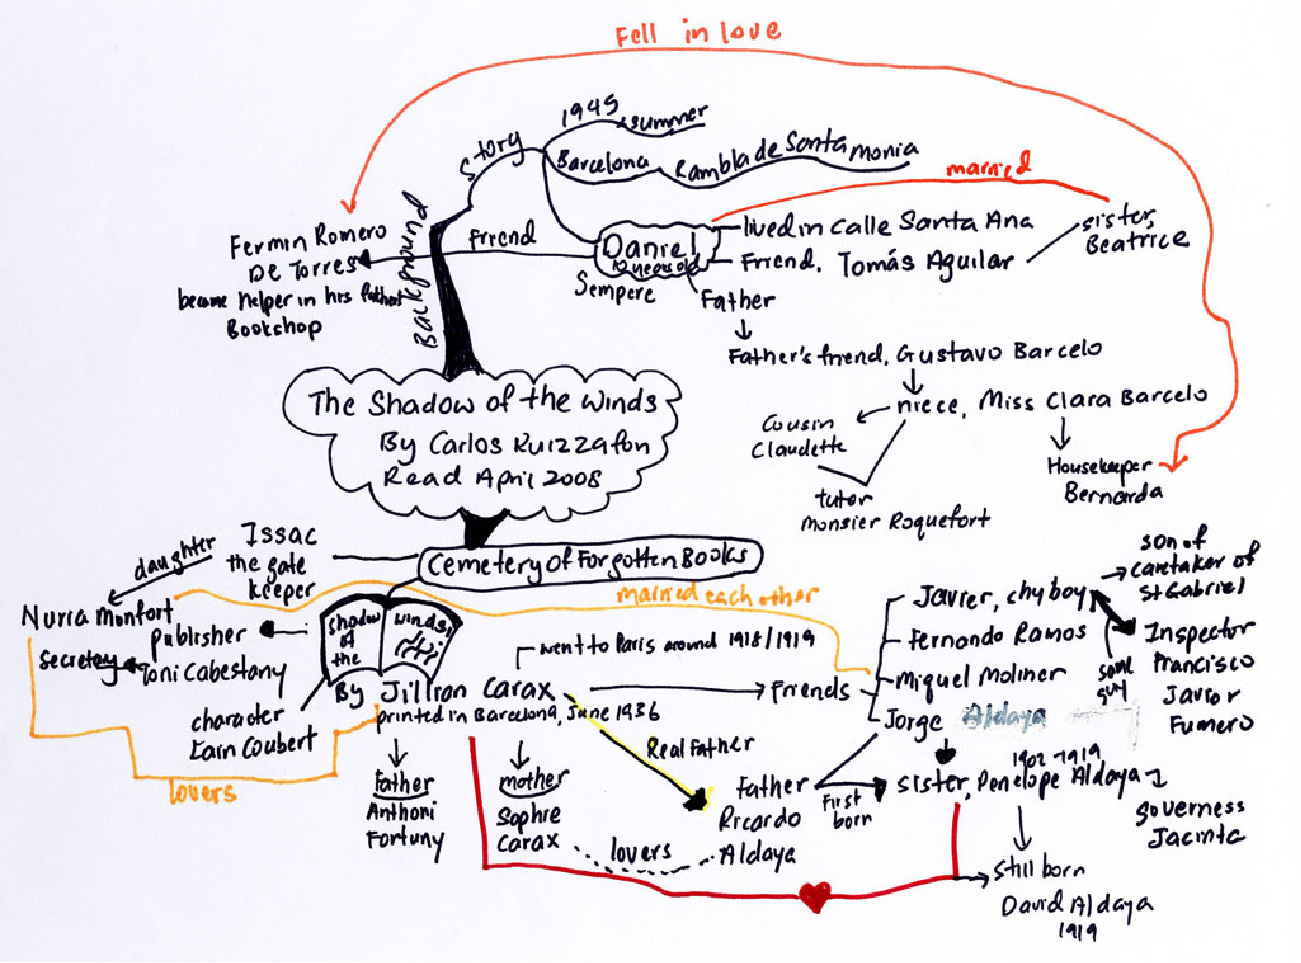 Fell in love
1945
summer
Story
Barcelona
Rambla de Santa monia
married
Background
Fermin Romero
De Torres
became helper in his father
Bookshop
Friend
Daniel
Sempere
lived in calle Santa Ana
Friend, Tomás Aguilar
sister,
Beatrice
Father
Father's friend, Gustavo Barcelo
niece, Miss Clara Barcelo
Cousin
Claudette
tutor
Monsier Roquefort
Housekeeper
Bernarda
The Shadow of the Winds
By Carlos Ruizzafon
Read April 2008
Cemetery of Forgotten Books
Issac
the gate
keeper
daughter
Nuria Monfort
publisher
Secretary
Toni Cabestany
married each other
Shadow
of
the
winds
By Jillian Carax
printed in Barcelona, June 1936
character
Lain Coubert
lovers
went to Paris around 1918/1919
Friends
Javier, chyboy
Fernando Ramos
Miquel Moliner
Jorge Aldaya
son of
caretaker of
St Gabriel
same
guy
Inspector
Francisco
Javior
Fumero
Father
Anthoni
Fortuny
mother
Sophie
Carax
lovers
Real Father
Father
Ricardo
Aldaya
First
born
1902-1919
sister, Penelope Aldaya
Governess
Jacinta
still born
David Aldaya
1919